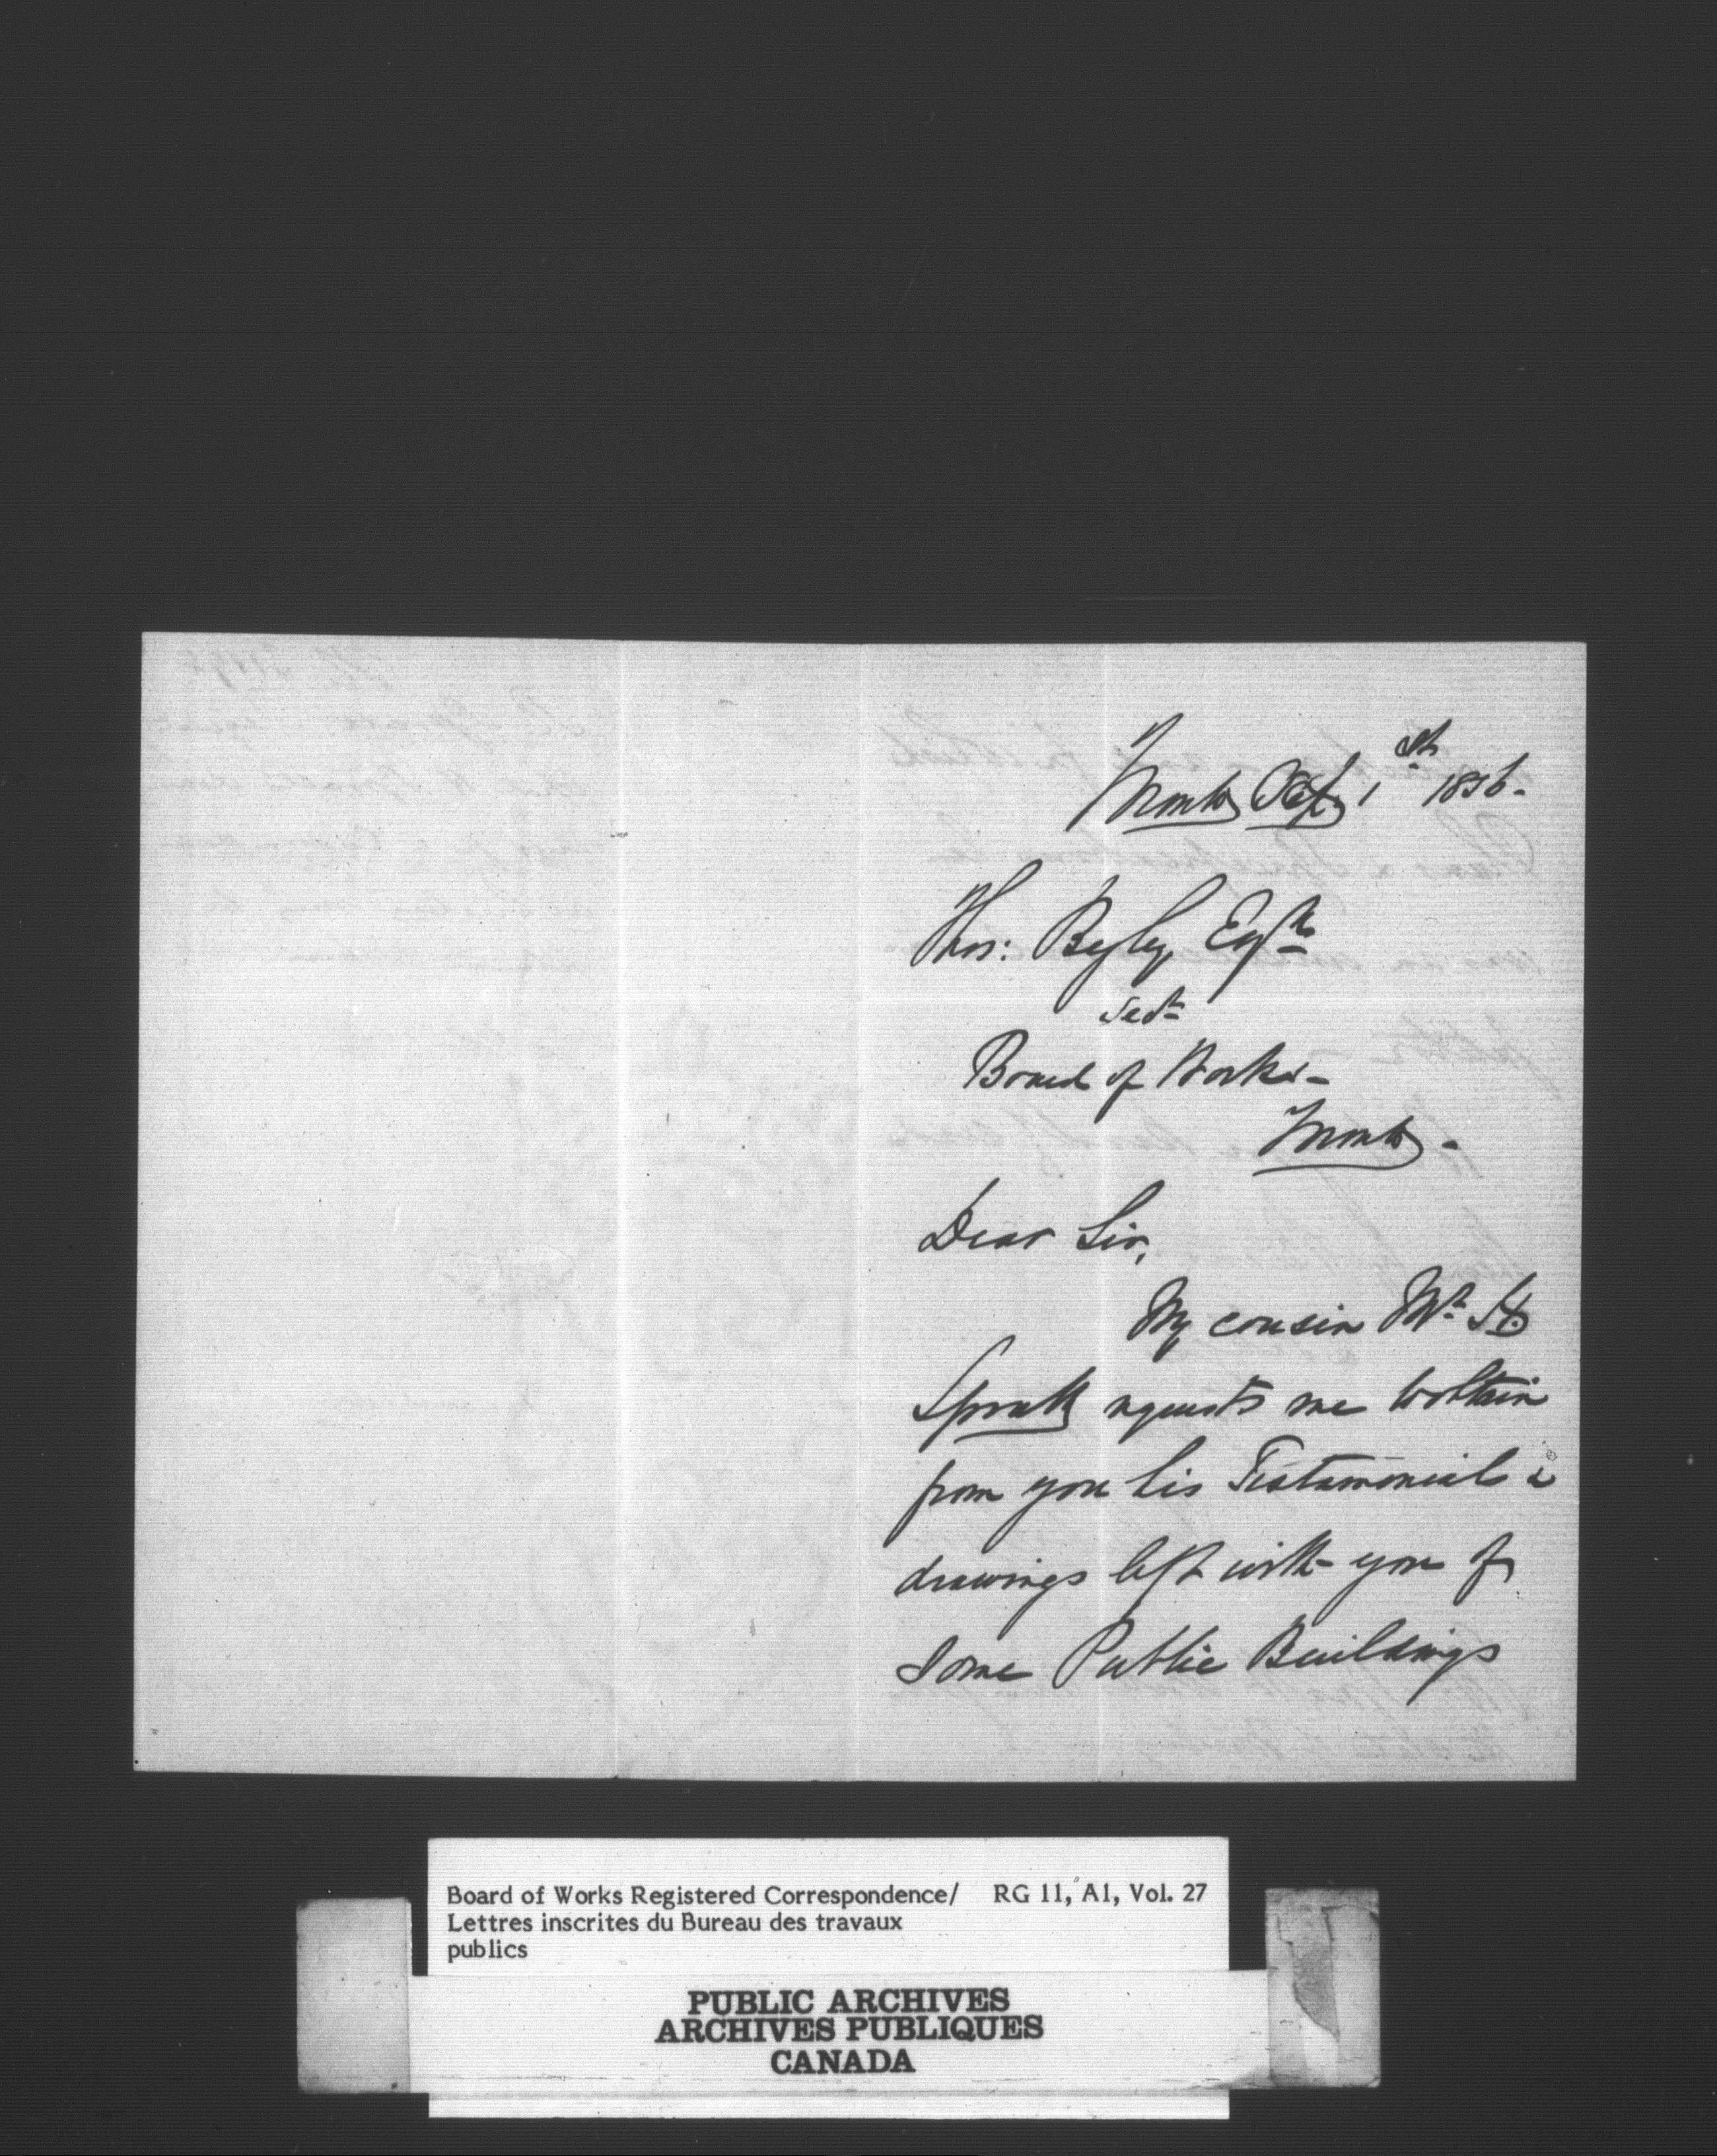 Toronto Octr 1st 1856.
Thos: Begley Esqre
Secty
Board of Works -
Toronto -
Dear Sir,
My cousin Mr. H.
Spratt requests me to obtain
from you his Testamonials &
drawings left with you of
Some Public Buildings
Board of Works Registered Correspondence/ RG 11, A1, Vol. 27
Lettres inscrites du Bureau des travaux
publics
PUBLIC ARCHIVES
ARCHIVES PUBLIQUES
CANADA